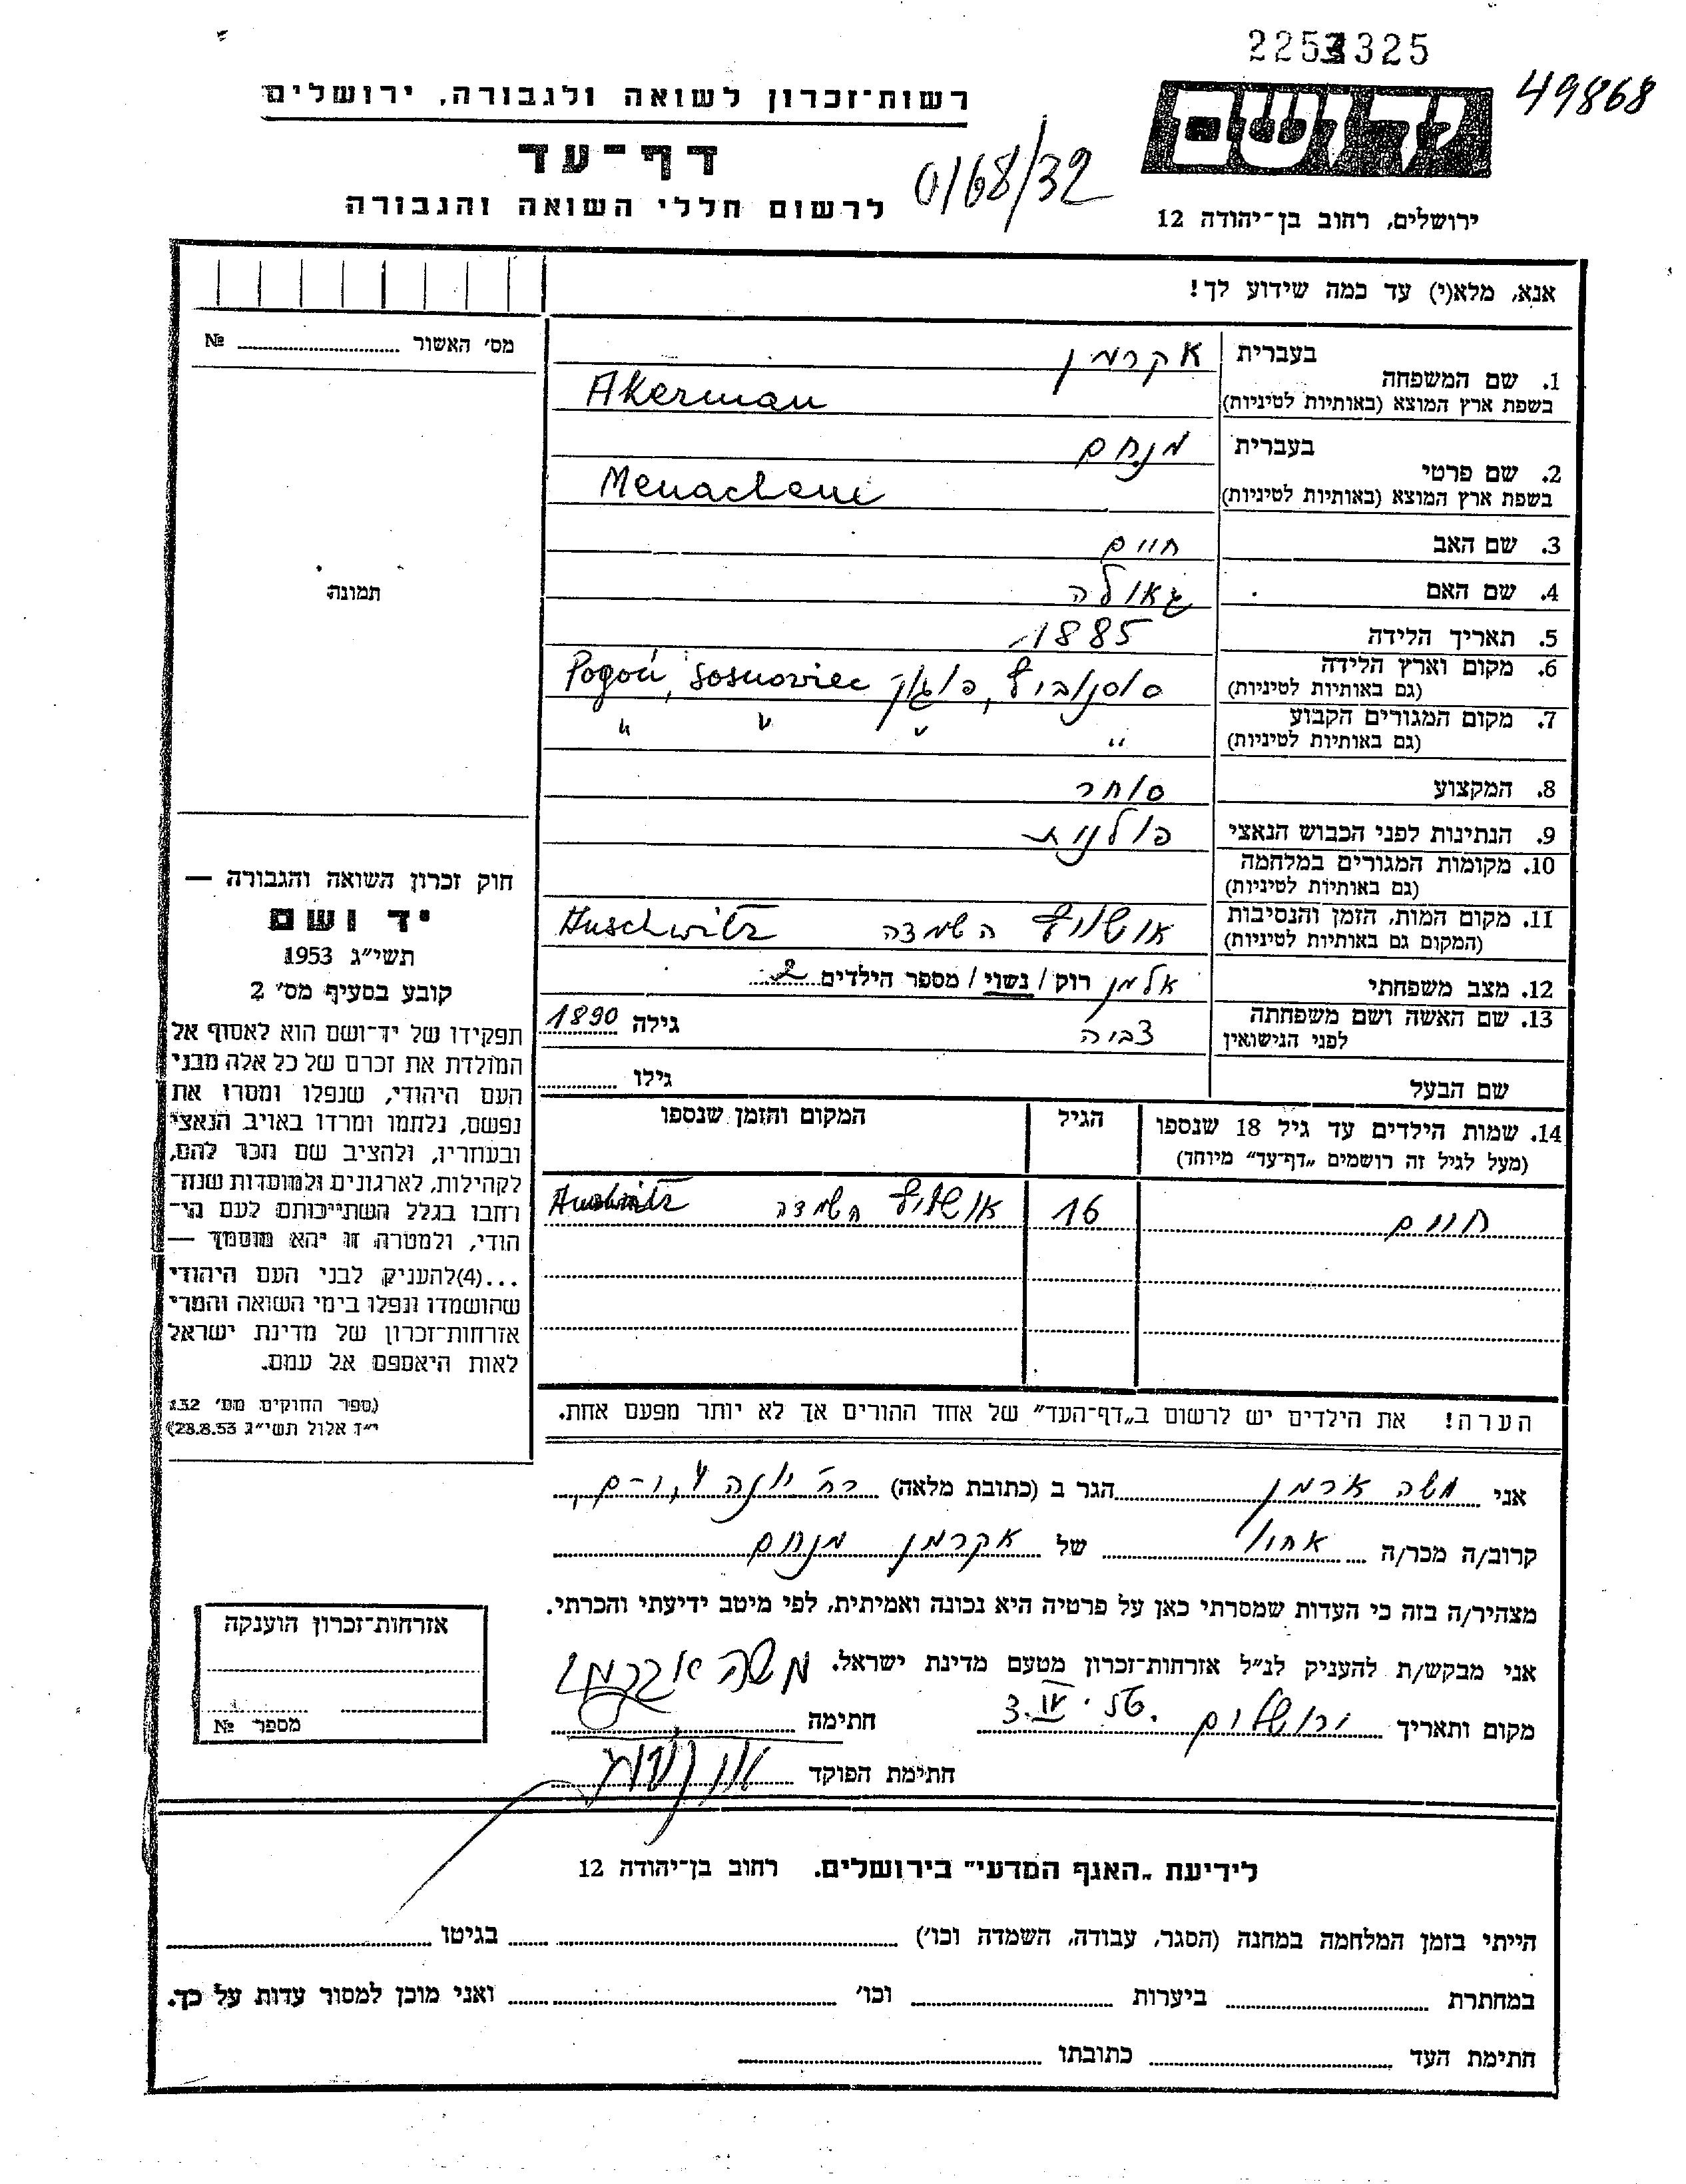 2253325
49868
יד ושם
רשות־זכרון לשואה ולגבורה, ירושלים
דף־עד
0/68/32
לרשום חללי השואה והגבורה
ירושלים, רחוב בן־יהודה 12
אנא, מלא(י) עד כמה שידוע לך!
מס׳ האשור № 
1. שם המשפחה
בעברית אקרמן
בשפת ארץ המוצא (באותיות לטיניות) Akerman
2. שם פרטי
בעברית מנחם
בשפת ארץ המוצא (באותיות לטיניות) Menachem
3. שם האב חיים
4. שם האם גאולה
5. תאריך הלידה 1885
6. מקום וארץ הלידה
(גם באותיות לטיניות) סוסנוביץ, פוגון Pogoń, Sosnoviec
7. מקום המגורים הקבוע " " " "
(גם באותיות לטיניות)
8. המקצוע סוחר
9. הנתינות לפני הכבוש הנאצי פולנית
10. מקומות המגורים במלחמה
(גם באותיות לטיניות)
11. מקום המות, הזמן והנסיבות
(המקום גם באותיות לטיניות) אושויץ השמדה Auschwitz
12. מצב משפחתי אלמן רוק / נשוי / מספר הילדים 2
13. שם האשה ושם משפחתה
לפני הנישואין צביה גילה 1890
שם הבעל גילו
14. שמות הילדים עד גיל 18 שנספו
(מעל לגיל זה רושמים „דף־עד״ מיוחד)
הגיל
המקום והזמן שנספו
חיים 16 אושויץ השמדה Auschwitz
הערה! את הילדים יש לרשום ב„דף־העד״ של אחד ההורים אך לא יותר מפעם אחת.
תמונה
חוק זכרון השואה והגבורה —
יד ושם
תשי״ג 1953
קובע בסעיף מס׳ 2
תפקידו של יד־ושם הוא לאסוף אל
המולדת את זכרם של כל אלה מבני
העם היהודי, שנפלו ומסרו את
נפשם, נלחמו ומרדו באויב הנאצי
ובעוזריו, ולהציב שם וזכר להם,
לקהילות, לארגונים ולמוסדות שנח־
רבו בגלל השתייכותם לעם הי־
הודי, ולמטרה זו יהא מוסמך —
...(4)להעניק לבני העם היהודי
שהושמדו ונפלו בימי השואה והמרי
אזרחות־זכרון של מדינת ישראל
לאות היאספם אל עמם.
(ספר החוקים מס׳ 132
י״ז אלול תשי״ג 28.8.53)
אני משה אקרמן הגר ב (כתובת מלאה) רח׳ יונה י-ם,
קרוב/ה מכר/ה אחיו של אקרמן מנחם
מצהיר/ה בזה כי העדות שמסרתי כאן על פרטיה היא נכונה ואמיתית, לפי מיטב ידיעתי והכרתי.
אני מבקש/ת להעניק לנ״ל אזרחות־זכרון מטעם מדינת ישראל.
משה אקרמן
מקום ותאריך ירושלים
חתימה
חתימת הפוקד
אזרחות־זכרון הוענקה
מספר №
לידיעת „האגף המדעי״ בירושלים. רחוב בן־יהודה 12
הייתי בזמן המלחמה במחנה (הסגר, עבודה, השמדה וכו׳) בגיטו
במחתרת ביערות וכו׳ ואני מוכן למסור עדות על כך.
חתימת העד כתובתו